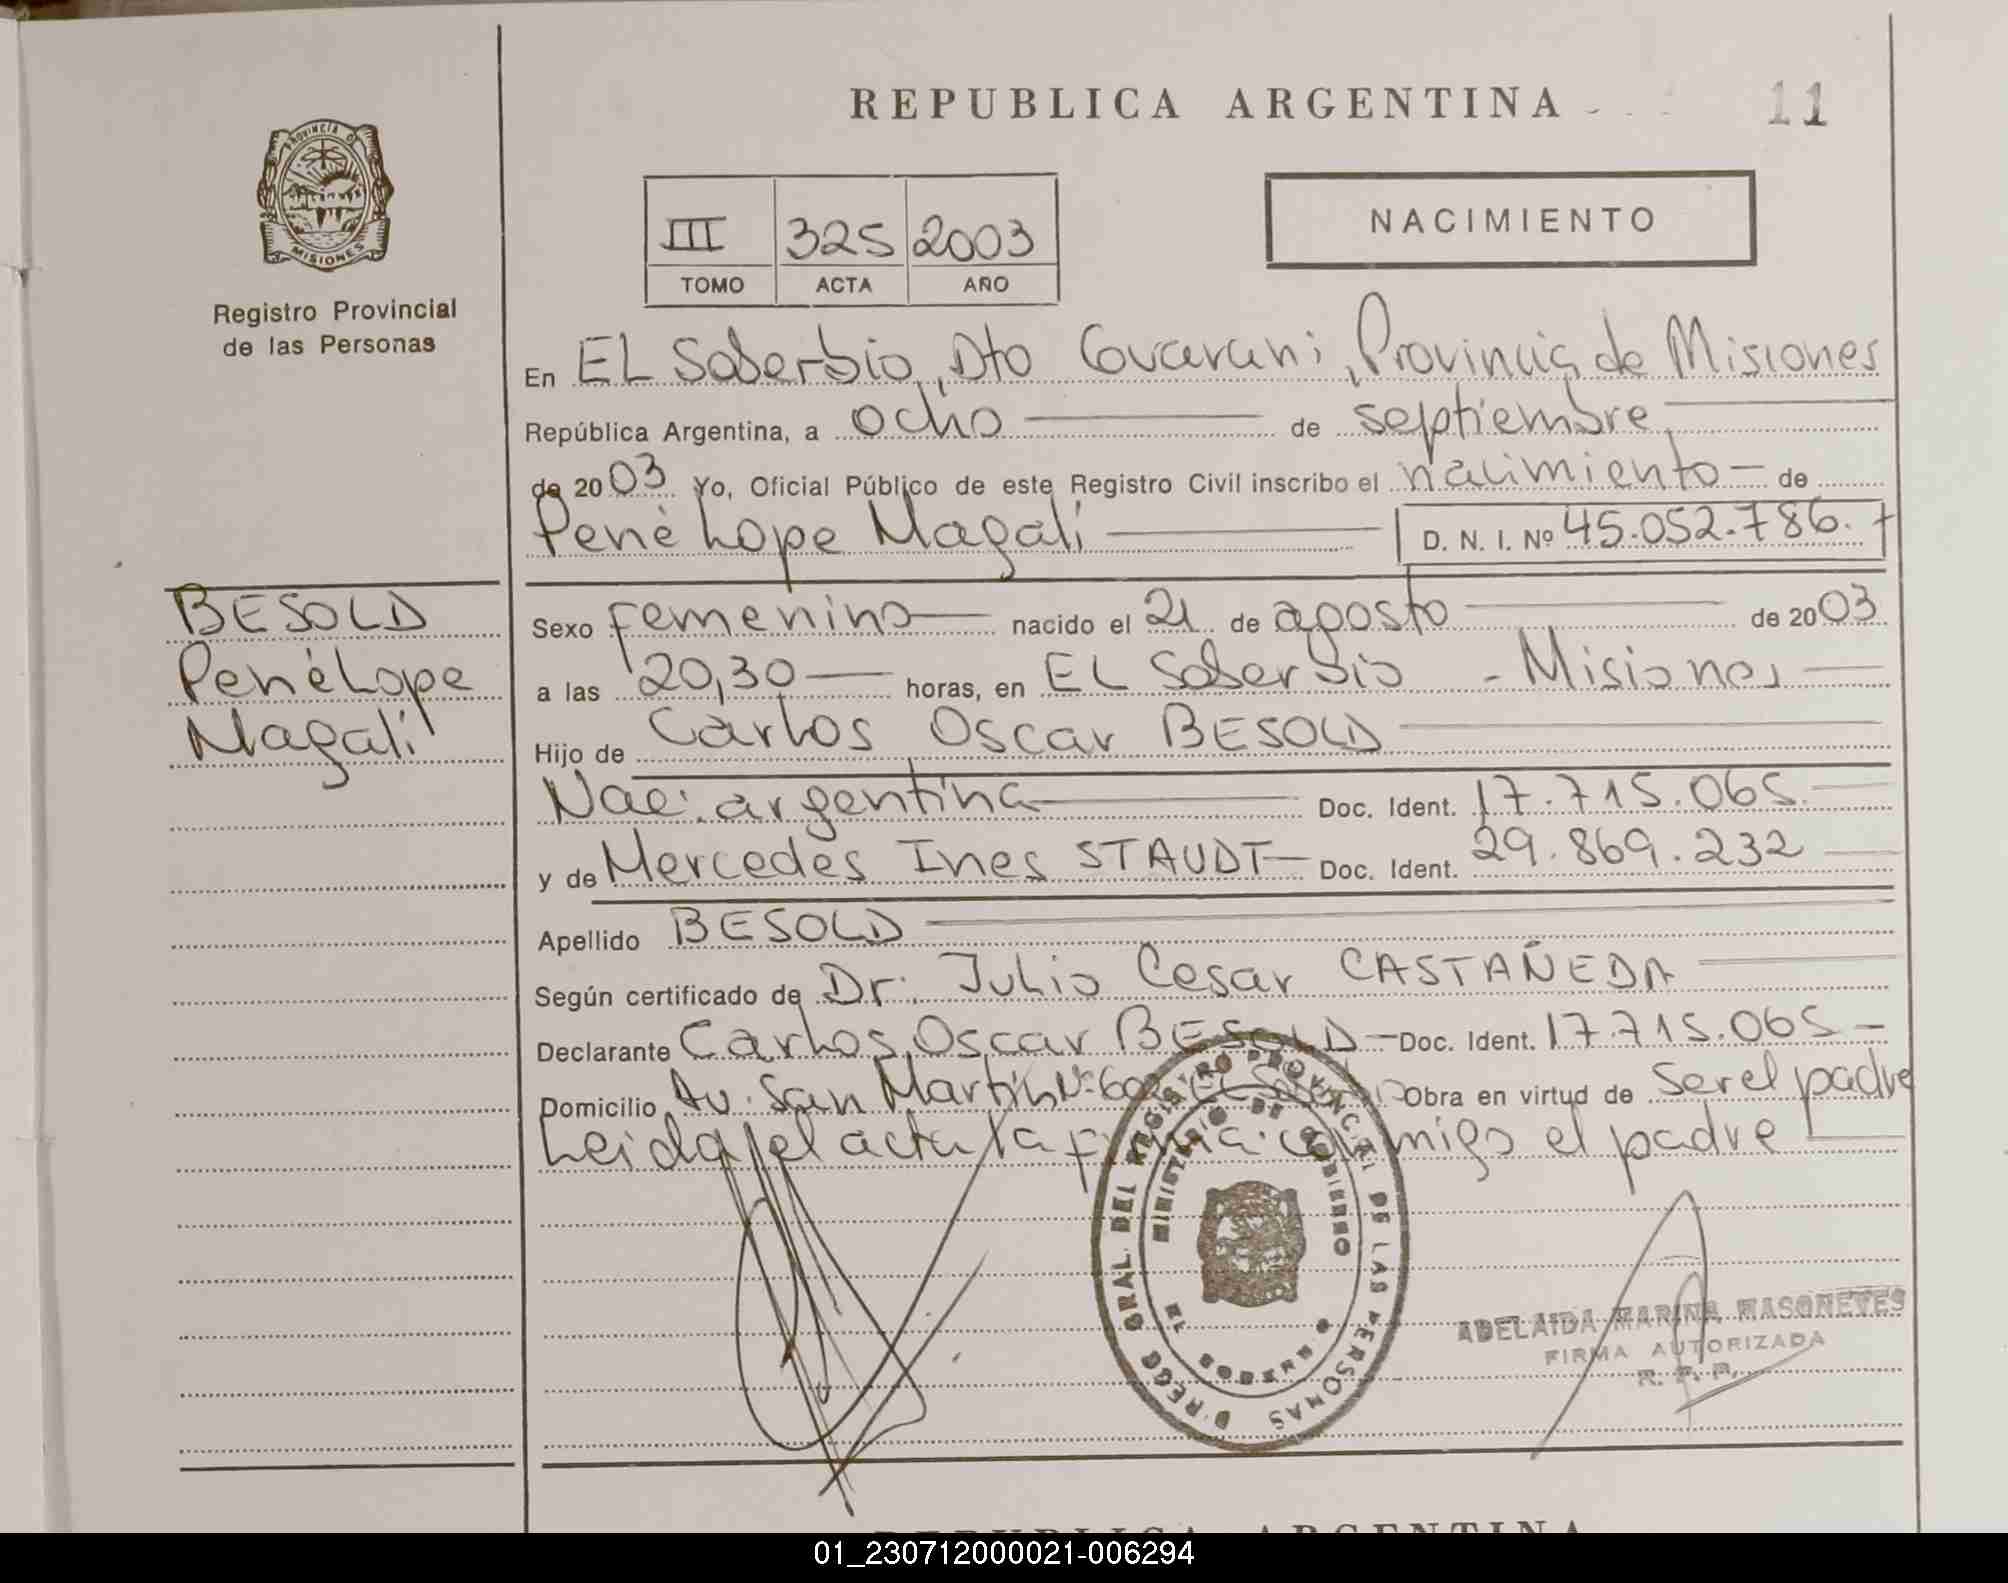 REPUBLICA ARGENTINA
11
PROVINCIA DE MISIONES
Registro Provincial
de las Personas
III 325 2003
TOMO ACTA AÑO
NACIMIENTO
En EL Soberbio, Dto Guarani, Provincia de Misiones
República Argentina, a ocho de septiembre
de 2003 Yo, Oficial Público de este Registro Civil inscribo el nacimiento de
Penélope Magali D. N. I. Nº 45.052.786.
BESOLD
Penélope
Magali
Sexo femenino nacido el 21 de agosto de 2003
a las 20,30 horas, en EL Soberbio - Misiones
Hijo de Carlos Oscar BESOLD
Nac: argentina Doc. Ident. 17.715.065.
y de Mercedes Ines STAUDT Doc. Ident. 29.869.232
Apellido BESOLD
Según certificado de Dr. Julio Cesar CASTAÑEDA
Declarante Carlos Oscar BESOLD Doc. Ident. 17.715.065
Domicilio Av. San Martín Nº El Soberbio Obra en virtud de ser el padre
Leida el acta la firma conmigo el padre
D'REGG GRAL. DEL REGISTRO PROVINCIAL DE LAS PERSONAS
MINISTERIO DE GOBIERNO
ADELAIDA MARINA MASONEVES
FIRMA AUTORIZADA
R. P. P.
REPUBLICA ARGENTINA
01_230712000021-006294